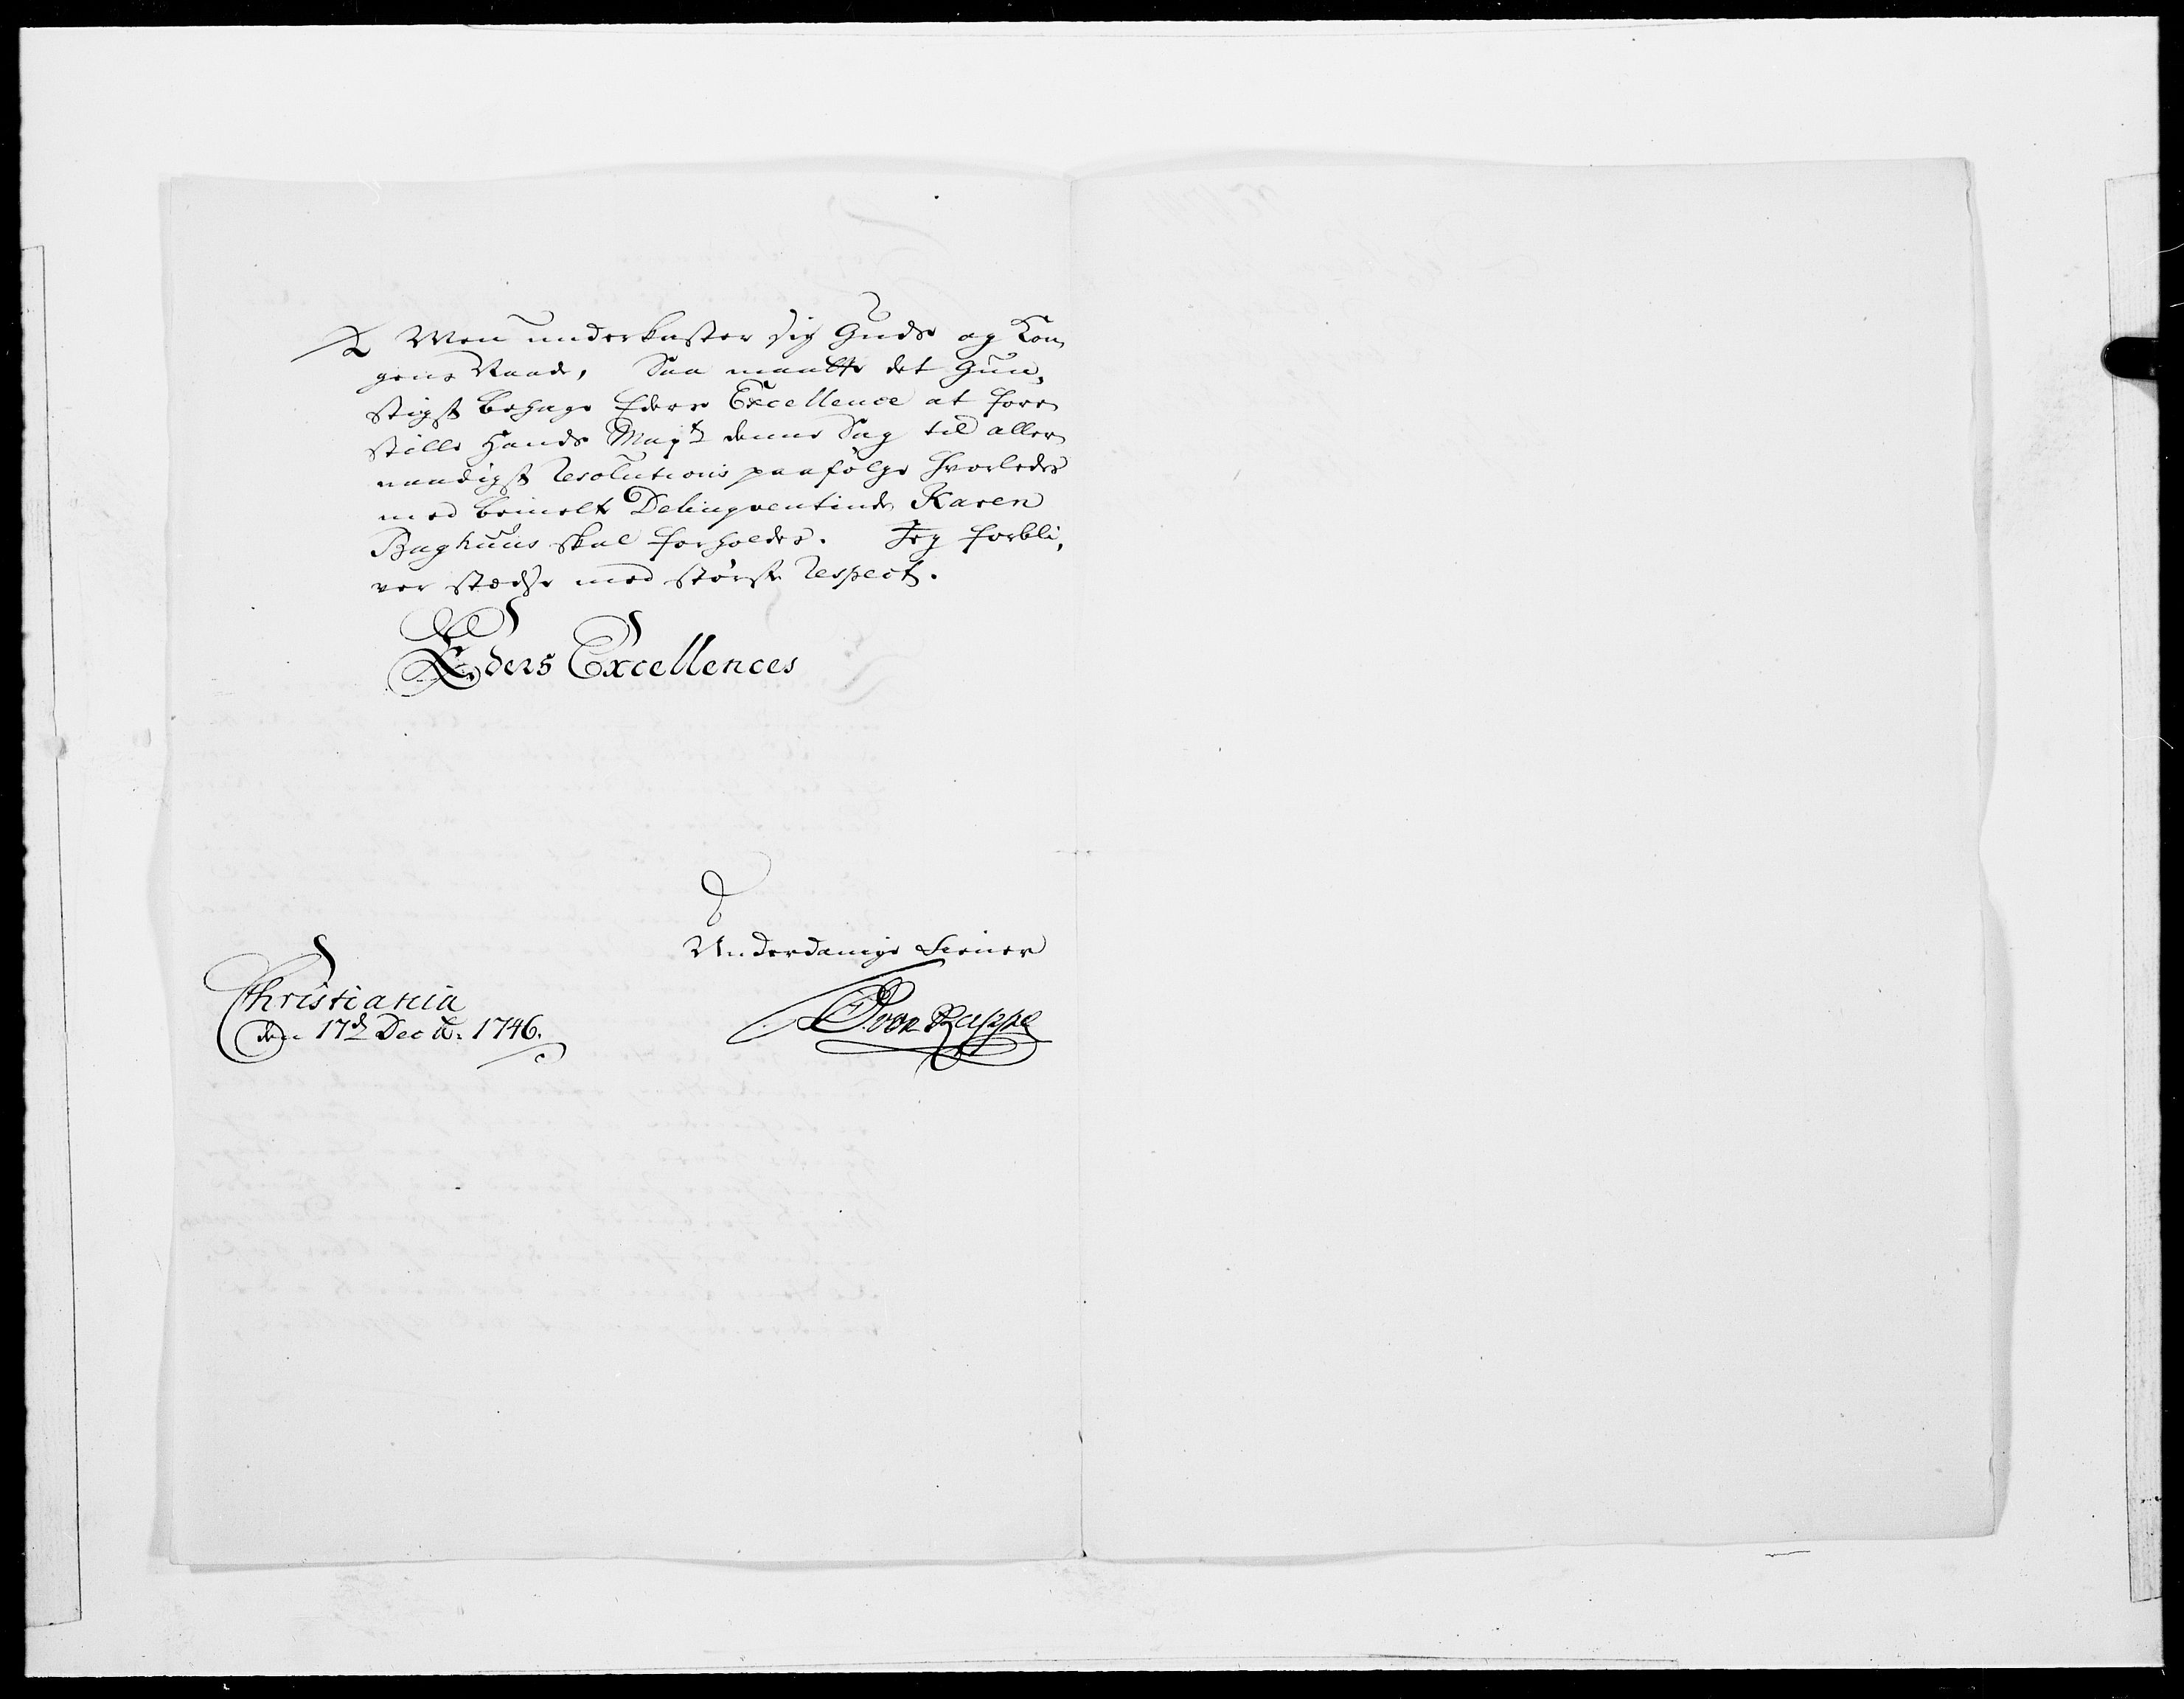 Men underkaster sig Guds og Kon
gens Naade, Saa maatte det Gun,
stigst behage Eders Excellence at fore
stille Hands Mayt. denne Sag til aller
naadigst Resolutions paafølge hvorledes
med bemelte Delinqventinde Karen
Baghuus skal forholdes. Jeg forbli,
ver stædse med størst Respect.
Eders Excellences
Underdanige Tiener
Christiania
den 17de Decbr. 1746.
von Rappe